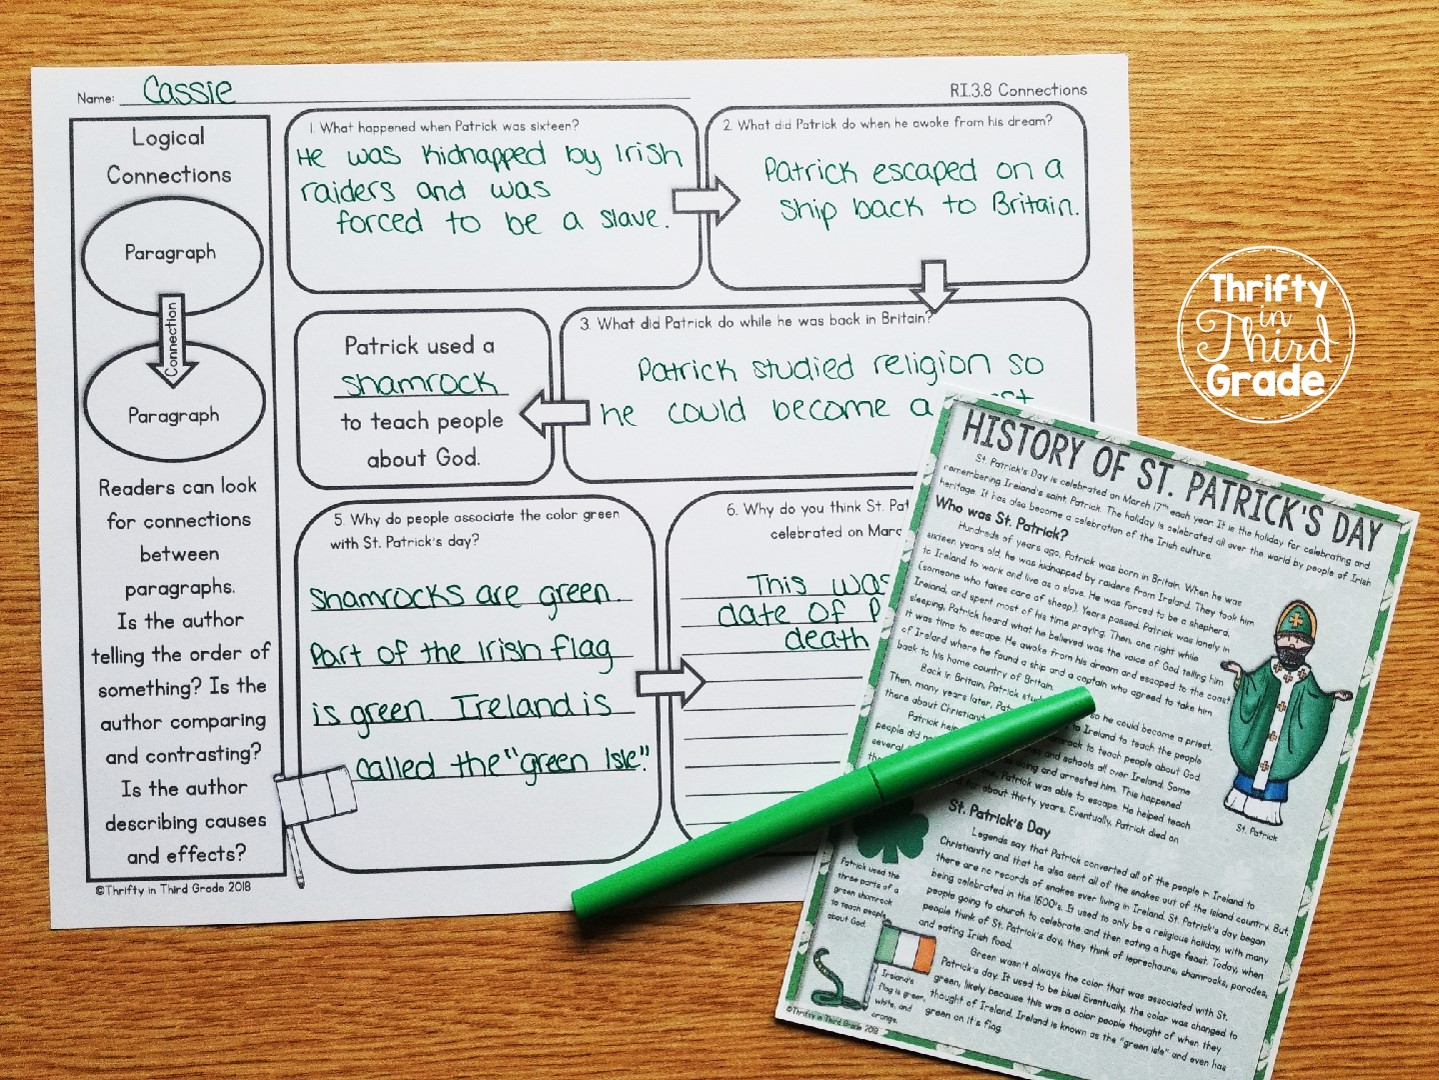 Name: Cassie
RI.3.8 Connections
Logical
Connections
Paragraph
Connection
Paragraph
Readers can look
for connections
between
paragraphs.
Is the author
telling the order of
something? Is the
author comparing
and contrasting?
Is the author
describing causes
and effects?
©Thrifty in Third Grade 2018
1. What happened when Patrick was sixteen?
He was kidnapped by Irish
raiders and was
forced to be a slave.
2. What did Patrick do when he awoke from his dream?
Patrick escaped on a
ship back to Britain.
3. What did Patrick do while he was back in Britain?
Patrick studied religion so
he could become a
Patrick used a
shamrock
to teach people
about God.
5. Why do people associate the color green
with St. Patrick's day?
Shamrocks are green.
Part of the Irish flag
is green. Ireland is
called the "green Isle".
6. Why do you think St. Pat
celebrated on Marc
This was
date of P
death
Thrifty
in
Third
Grade
HISTORY OF ST. PATRICK'S DAY
St. Patrick's Day is celebrated on March 17th each year. It is the holiday for celebrating and
remembering Ireland's saint, Patrick. The holiday is celebrated all over the world by people of Irish
heritage. It has also become a celebration of the Irish culture.
Who was St. Patrick?
Hundreds of years ago, Patrick was born in Britain. When he was
sixteen years old, he was kidnapped by raiders from Ireland. They took him
to Ireland to work and live as a slave. He was forced to be a shepherd,
(someone who takes care of sheep). Years passed. Patrick was lonely in
Ireland, and spent most of his time praying. Then, one night while
sleeping, Patrick heard what he believed was the voice of God telling him
it was time to escape. He awoke from his dream and escaped to the coast
of Ireland where he found a ship and a captain who agreed to take him
back to his home country of Britain.
Back in Britain, Patrick stud so he could become a priest.
Then, many years later, Pat to Ireland to teach the people
there about Christiani rock to teach people about God.
Patrick help ches and schools all over Ireland. Some
people did no and arrested him. This happened
several Patrick was able to escape. He helped teach
for about thirty years. Eventually, Patrick died on
St. Patrick
St. Patrick's Day
Legends say that Patrick converted all of the people in Ireland to
Christianity and that he also sent all of the snakes out of the island country. But,
there are no records of snakes ever living in Ireland. St. Patrick's day began
being celebrated in the 1600's. It used to only be a religious holiday, with many
people going to church to celebrate and then eating a huge feast. Today, when
people think of St. Patrick's day, they think of leprechauns, shamrocks, parades,
and eating Irish food.
Green wasn't always the color that was associated with St.
Patrick's day. It used to be blue! Eventually, the color was changed to
green, likely because this was a color people thought of when they
thought of Ireland. Ireland is known as the "green isle" and even has
green on it's flag.
Patrick used the
three parts of a
green shamrock
to teach people
about God.
Ireland's
flag is green,
white, and
orange.
©Thrifty in Third Grade 2018